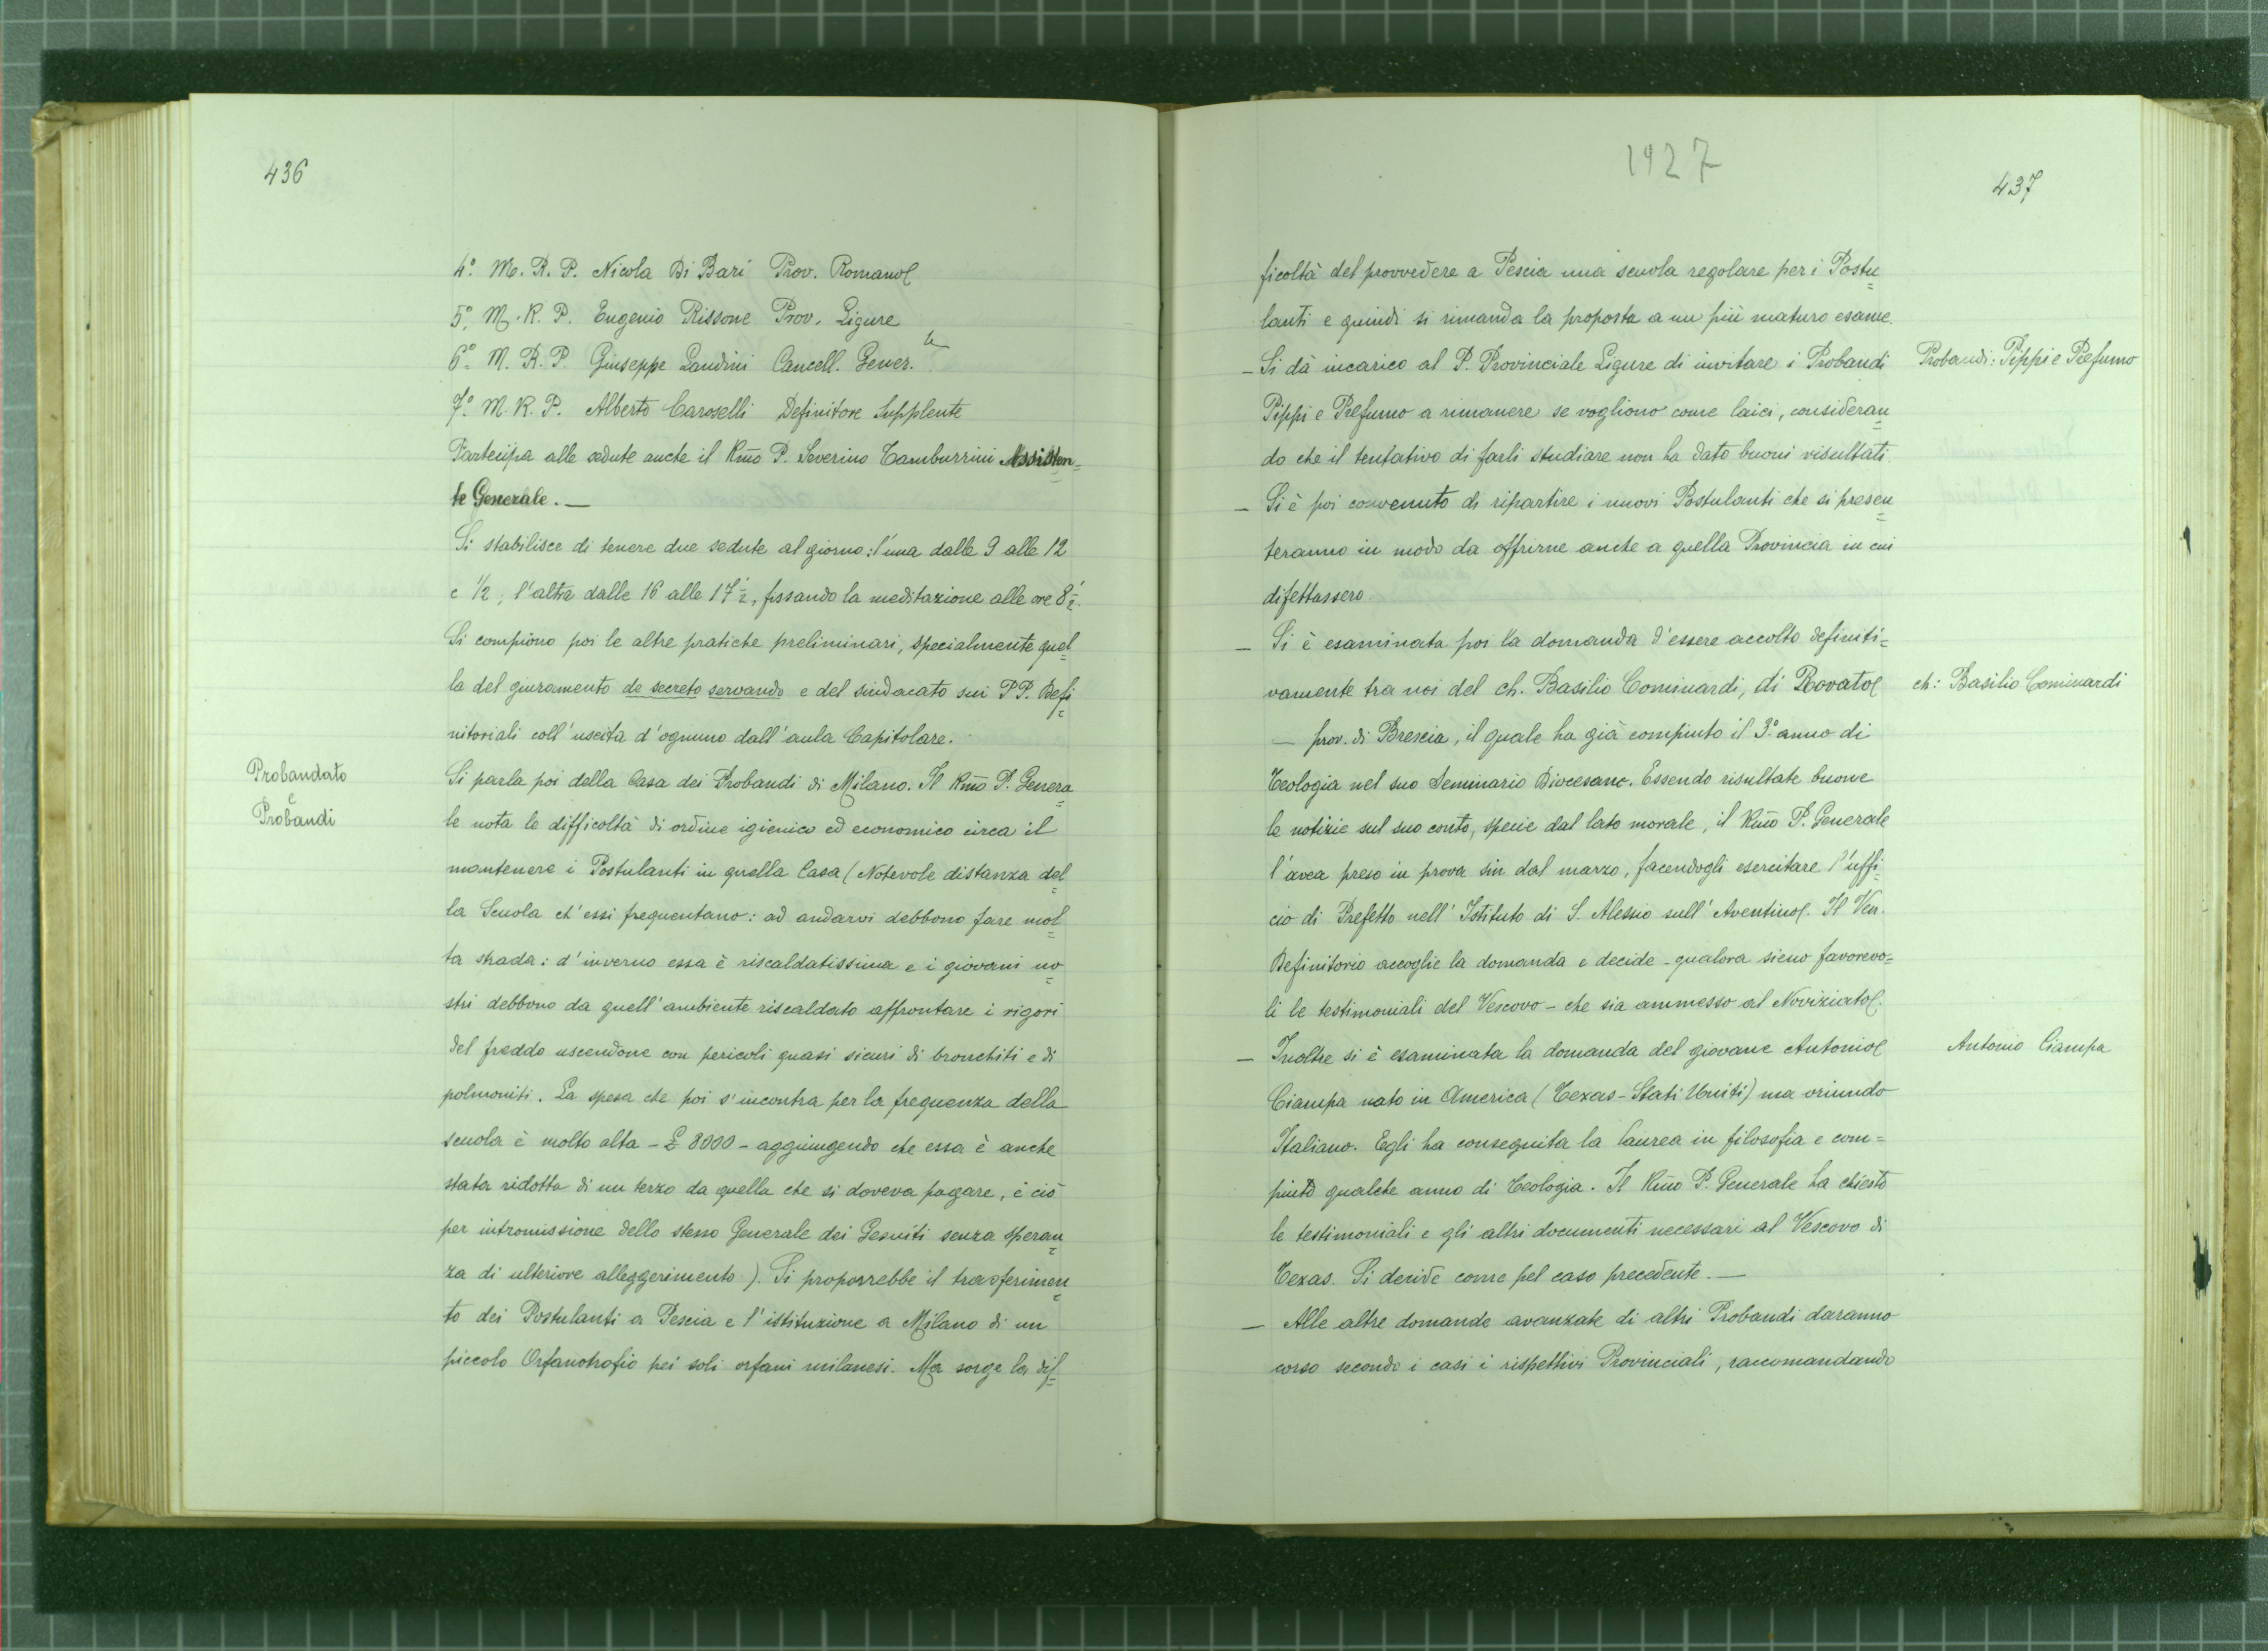 436
4º. M. R. P. Nicola Di Bari Prov. Romano
5º. M. R. P. Eugenio Rissone Prov. Ligure
6º. M. R. P. Giuseppe Landini Cancell. Gener.le
7º. M. R. P. Alberto Caroselli Definitore Supplente
Partecipa alle sedute anche il Rmo P. Severino Tamburrini Assisten=
te Generale. —
Si stabilisce di tenere due sedute al giorno: l'una dalle 9 alle 12
e 1/2; l'altra dalle 16 alle 17 1/2, fissando la meditazione alle ore 8 1/2.
Si compiono poi le altre pratiche preliminari, specialmente quel=
la del giuramento de secreto servando e del sindacato sui PP. Defi=
nitoriali coll'uscita d'ognuno dall'aula Capitolare.
Probandato
e
Probandi
Si parla poi della Casa dei Probandi di Milano. Il Rmo P. Genera=
le nota le difficoltà di ordine igienico ed economico circa il
mantenere i Postulanti in quella Casa (Notevole distanza del=
la Scuola ch'essi frequentano: ad andarvi debbono fare mol=
ta strada: d'inverno essa è riscaldatissima e i giovani no=
stri debbono da quell'ambiente riscaldato affrontare i rigori
del freddo uscendone con pericoli quasi sicuri di bronchiti e di
polmoniti. La spesa che poi s'incontra per la frequenza della
scuola è molto alta - £ 8000 - aggiungendo che essa è anche
stata ridotta di un terzo da quella che si doveva pagare, e ciò
per intromissione dello stesso Generale dei Gesuiti senza speran=
za di ulteriore alleggerimento). Si proporrebbe il trasferimen=
to dei Postulanti a Pescia e l'istituzione a Milano di un
piccolo Orfanotrofio pei soli orfani milanesi. Ma sorge la dif=
1927
437
ficoltà del provvedere a Pescia una scuola regolare per i Postu=
lanti e quindi si rimanda la proposta a un più maturo esame.
— Si dà incarico al P. Provinciale Ligure di invitare i Probandi
Probandi: Pippi e Prefumo
Pippi e Prefumo a rimanere se vogliono come laici, consideran=
do che il tentativo di farli studiare non ha dato buoni risultati.
— Si è poi convenuto di ripartire i nuovi Postulanti che si presen=
teranno in modo da offrirne anche a quella Provincia in cui
difettassero.
— Si è esaminata poi la domanda d'essere accolto definiti=
vamente tra noi del ch. Basilio Cominardi, di Rovato
ch: Basilio Cominardi
— prov. di Brescia, il quale ha già compiuto il 3º. anno di
Teologia nel suo Seminario Diocesano. Essendo risultate buone
le notizie sul suo conto, specie dal lato morale, il Rmo P. Generale
l'avea preso in prova sin dal marzo, facendogli esercitare l'uffi=
cio di Prefetto nell'Istituto di S. Alessio sull'Aventino. Il Ven.
Definitorio accoglie la domanda e decide - qualora sieno favorevo=
li le testimoniali del Vescovo - che sia ammesso al Noviziato.
— Inoltre si è esaminata la domanda del giovane Antonio
Antonio Ciampa
Ciampa nato in America (Texas - Stati Uniti) ma oriundo
Italiano. Egli ha conseguita la laurea in filosofia e com=
piuto qualche anno di Teologia. Il Rmo P. Generale ha chiesto
le testimoniali e gli altri documenti necessari al Vescovo di
Texas. Si decide come pel caso precedente. —
— Alle altre domande avanzate di altri Probandi daranno
corso secondo i casi i rispettivi Provinciali, raccomandando